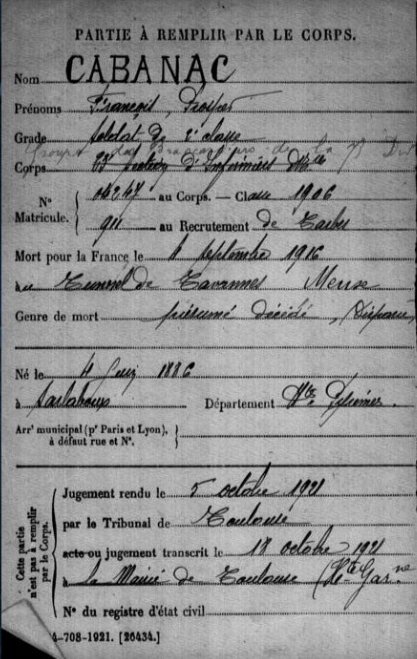 PARTIE À REMPLIR PAR LE CORPS.
Nom CABANAC
Prénoms François, Prosper
Grade Soldat de 2e classe
Groupe des Brancardiers de la
Corps d'Infirmiers Mres
N° Matricule. { 04247 au Corps. — Classe 1906
911 au Recrutement de Tarbes
Mort pour la France le 4 septembre 1916
au Tunnel de Tavannes Meuse
Genre de mort présumé décédé, (disparu)
Né le 4 Juin 1886
à Sarlabous Département Htes Pyrénées
Arrt municipal (pr Paris et Lyon), à défaut rue et N°. }
Cette partie n'est pas à remplir par le Corps.
Jugement rendu le 5 octobre 1921
par le Tribunal de Toulouse
acte ou jugement transcrit le 18 octobre 1921
à la Mairie de Toulouse (Hte Garne
N° du registre d'état civil
4-708-1921. [26434.]